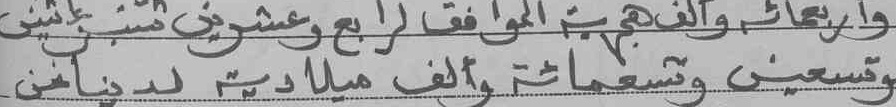 وأربعمائة وألف هجرية الموافق لرابع وعشرين شتنبر اثنين
وتسعين وتسعمائة وألف ميلادية لدينا نحن